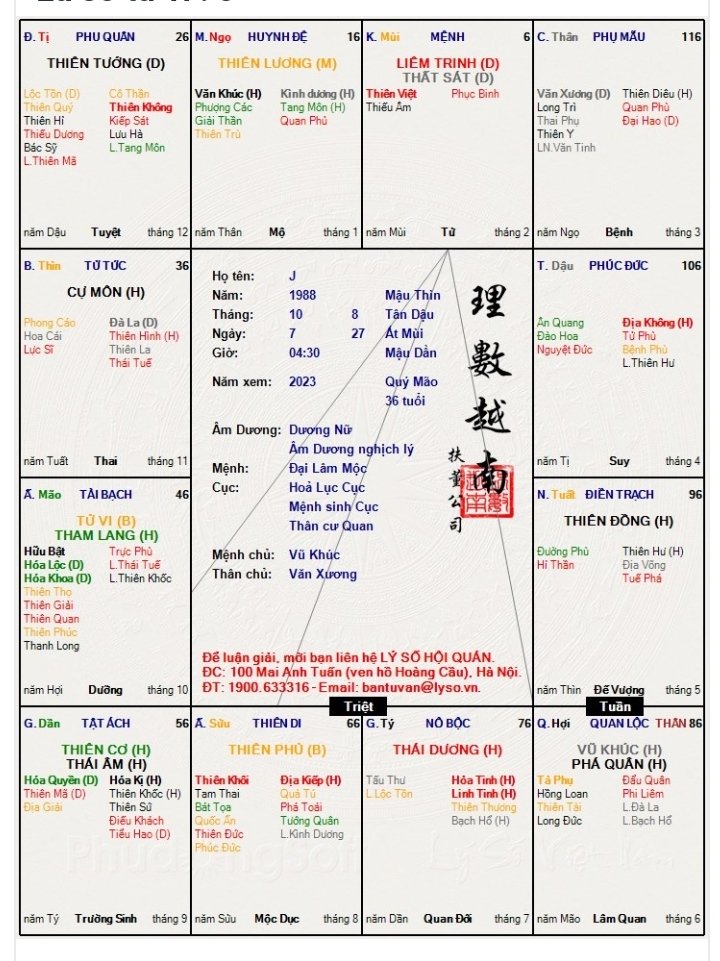 Đ. Tị PHU QUÂN 26
THIÊN TƯỚNG (D)
Lộc Tồn (D) Cô Thần
Thiên Quý Thiên Không
Thiên Hỉ Kiếp Sát
Thiếu Dương Lưu Hà
Bác Sỹ L.Tang Môn
L.Thiên Mã
năm Dậu Tuyệt tháng 12
M. Ngọ HUYNH ĐỆ 16
THIÊN LƯƠNG (M)
Văn Khúc (H) Kình dương (H)
Phượng Các Tang Môn (H)
Giải Thần Quan Phủ
Thiên Trù
năm Thân Mộ tháng 1
K. Mùi MỆNH 6
LIÊM TRINH (D)
THẤT SÁT (D)
Thiên Việt Phục Binh
Thiếu Âm
năm Mùi Tử tháng 2
C. Thân PHỤ MẪU 116
Văn Xương (D) Thiên Diêu (H)
Long Trì Quan Phù
Thai Phụ Đại Hao (D)
Thiên Y
LN.Văn Tinh
năm Ngọ Bệnh tháng 3
B. Thìn TỬ TỨC 36
CỰ MÔN (H)
Phong Cáo Đà La (D)
Hoa Cái Thiên Hình (H)
Lực Sĩ Thiên La
Thái Tuế
năm Tuất Thai tháng 11
Họ tên: J
Năm: 1988 Mậu Thìn
Tháng: 10 8 Tân Dậu
Ngày: 7 27 Ất Mùi
Giờ: 04:30 Mậu Dần
Năm xem: 2023 Quý Mão
36 tuổi
Âm Dương: Dương Nữ
Âm Dương nghịch lý
Mệnh: Đại Lâm Mộc
Cục: Hoả Lục Cục
Mệnh sinh Cục
Thân cư Quan
Mệnh chủ: Vũ Khúc
Thân chủ: Văn Xương
理數越南
扶董公司
Để luận giải, mời bạn liên hệ LÝ SỐ HỘI QUÁN.
ĐC: 100 Mai Anh Tuấn (ven hồ Hoàng Cầu), Hà Nội.
ĐT: 1900.633316 - Email: bantuvan@lyso.vn.
T. Dậu PHÚC ĐỨC 106
Ân Quang Địa Không (H)
Đào Hoa Tử Phù
Nguyệt Đức Bệnh Phù
L.Thiên Hư
năm Tị Suy tháng 4
Ấ. Mão TÀI BẠCH 46
TỬ VI (B)
THAM LANG (H)
Hữu Bật Trực Phù
Hóa Lộc (D) L.Thái Tuế
Hóa Khoa (D) L.Thiên Khốc
Thiên Thọ
Thiên Giải
Thiên Quan
Thiên Phúc
Thanh Long
năm Hợi Dưỡng tháng 10
N. Tuất ĐIỀN TRẠCH 96
THIÊN ĐỒNG (H)
Đường Phù Thiên Hư (H)
Hỉ Thần Địa Võng
Tuế Phá
năm Thìn Đế Vượng tháng 5
Triệt
Tuần
G. Dần TẬT ÁCH 56
THIÊN CƠ (H)
THÁI ÂM (H)
Hóa Quyền (D) Hóa Kị (H)
Thiên Mã (D) Thiên Khốc (H)
Địa Giải Thiên Sứ
Điếu Khách
Tiểu Hao (D)
năm Tý Trường Sinh tháng 9
Ấ. Sửu THIÊN DI 66
THIÊN PHỦ (B)
Thiên Khôi Địa Kiếp (H)
Tam Thai Quả Tú
Bát Tọa Phá Toái
Quốc Ấn Tướng Quân
Thiên Đức L.Kình Dương
Phúc Đức
năm Sửu Mộc Dục tháng 8
G. Tý NÔ BỘC 76
THÁI DƯƠNG (H)
Tấu Thư Hỏa Tinh (H)
L.Lộc Tồn Linh Tinh (H)
Thiên Thương
Bạch Hổ (H)
năm Dần Quan Đới tháng 7
Q. Hợi QUAN LỘC THÂN 86
VŨ KHÚC (H)
PHÁ QUÂN (H)
Tả Phụ Đẩu Quân
Hồng Loan Phi Liêm
Thiên Tài L.Đà La
Long Đức L.Bạch Hổ
năm Mão Lâm Quan tháng 6